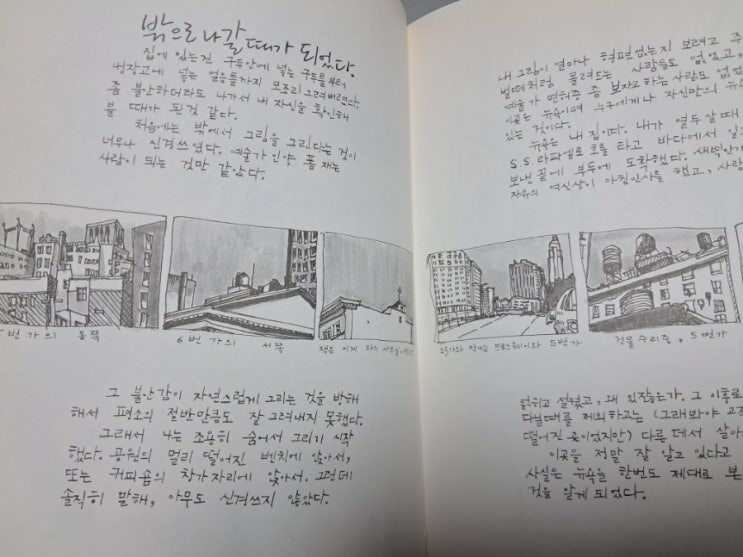 밖으로 나갈 때가 되었다.
집에 있는건 구두안에 넣는 구두틀부터
냉장고에 넣는 얼음틀까지 모조리 그려버렸다.
좀 불안하더라도 나가서 내 자신을 확인해
볼 때가 된것 같다.
처음에는 밖에서 그림을 그린다는 것이
너무나 신경쓰였다. 예술가인양 폼 재는
사람이 되는 것만 같았다.
5번가의 동쪽
6번가의 서쪽
그 불안감이 자연스럽게 그리는 것을 방해
해서 평소의 절반만큼도 잘 그려내지 못했다.
그래서 나는 조용히 숨어서 그리기 시작
했다. 공원의 멀리 떨어진 벤치에 앉아서,
또는 커피숍의 창가자리에 앉아서. 그런데
솔직히 말해, 아무도 신경쓰지 않았다.
내 그림이 얼마나 형편없는지 보려고 주
벌떼처럼 몰려드는 사람들도 없었고,
예술가 면허증 좀 보자고하는 사람도 없었
이곳은 뉴욕이며 누구에게나 자신만의 뉴욕
있는 것이다.
뉴욕은 내 집이다. 내가 열두살 때
S.S. 라파엘로 호를 타고 바다에서 일
보낸 끝에 부두에 도착했다. 새벽안개
자유의 여신상이 아침인사를 했고, 사람
23가와 만나는 브로드웨이와 5번가
건물수리중, 5번가
얽히고 설켰고, 왜 있잖은가. 그 이후로
다닐때를 제외하고는 (그래봐야 고작
떨어진 곳이었지만) 다른 데서 살아
이곳을 정말 잘 알고 있다고
사실은 뉴욕을 한번도 제대로 본
것을 알게 되었다.